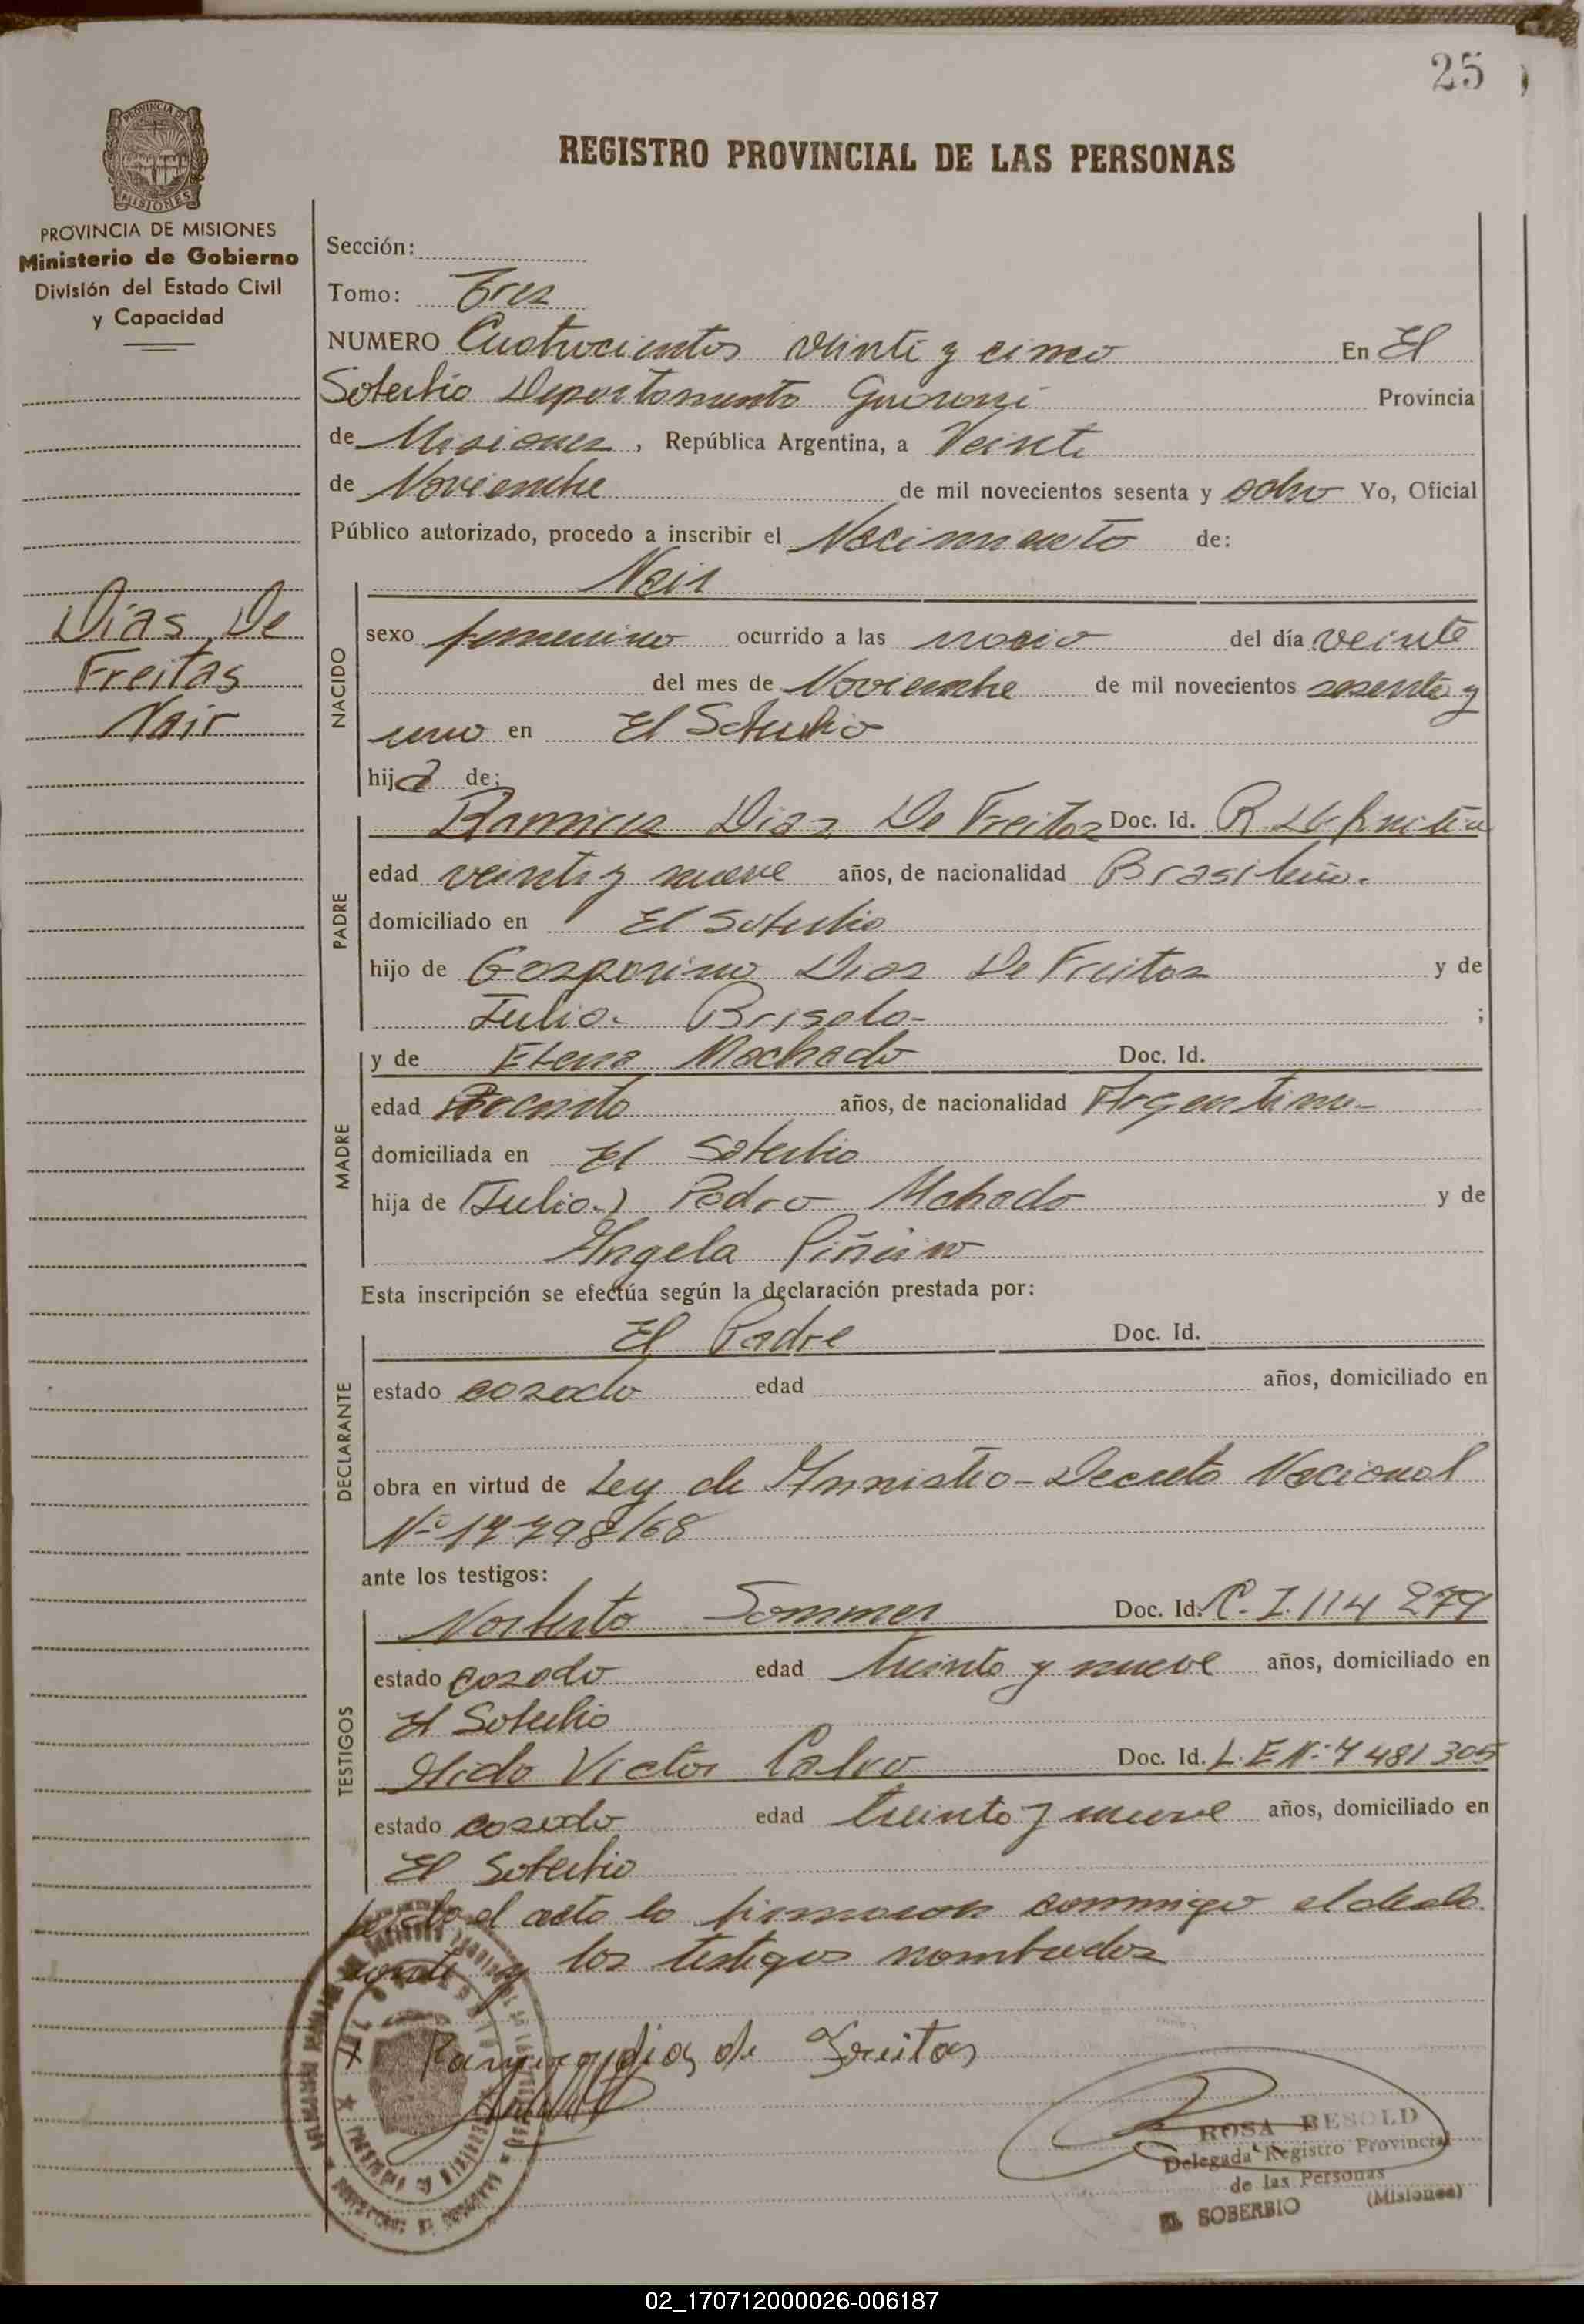 25
REGISTRO PROVINCIAL DE LAS PERSONAS
PROVINCIA DE MISIONES
PROVINCIA DE MISIONES
Ministerio de Gobierno
División del Estado Civil
y Capacidad
Dias De
Freitas
Nair
Sección:
Tomo: Tres
NUMERO Cuatrocientos veinte y cinco En El
Soberbio Departamento Guarani Provincia
de Misiones, República Argentina, a Veinte
de Noviembre de mil novecientos sesenta y ocho Yo, Oficial
Público autorizado, procedo a inscribir el Nacimiento de:
Nair
NACIDO
sexo femenino ocurrido a las del día veinte
del mes de Noviembre de mil novecientos sesenta y
uno en El Soberbio
hija de:
PADRE
Ramires Dias De Freitas Doc. Id. R
edad veinte y nueve años, de nacionalidad Brasileño.
domiciliado en El Soberbio
hijo de Gasparino Dias De Freitas y de
Julia Brisola ;
MADRE
y de Elena Machado Doc. Id.
edad años, de nacionalidad Argentina
domiciliada en El Soberbio
hija de (Julio.) Pedro Machado y de
Angela Piñeiro
Esta inscripción se efectúa según la declaración prestada por:
DECLARANTE
El Padre Doc. Id.
estado casado edad años, domiciliado en
obra en virtud de Ley de Amnistia - Decreto Nacional
Nº 17798/68
ante los testigos:
TESTIGOS
Norberto Sommer Doc. Id. C. I. 114 279
estado casado edad treinta y nueve años, domiciliado en
El Soberbio
Victor Calvo Doc. Id. L. E Nº 7 481 305
estado casado edad treinta y nueve años, domiciliado en
El Soberbio
el acta la firmaron conmigo el decla
rante y los testigos nombrados
Ramires dias de Freitas
ROSA BESOLD
Delegada Registro Provincial
de las Personas
EL SOBERBIO (Misiones)
02_170712000026-006187